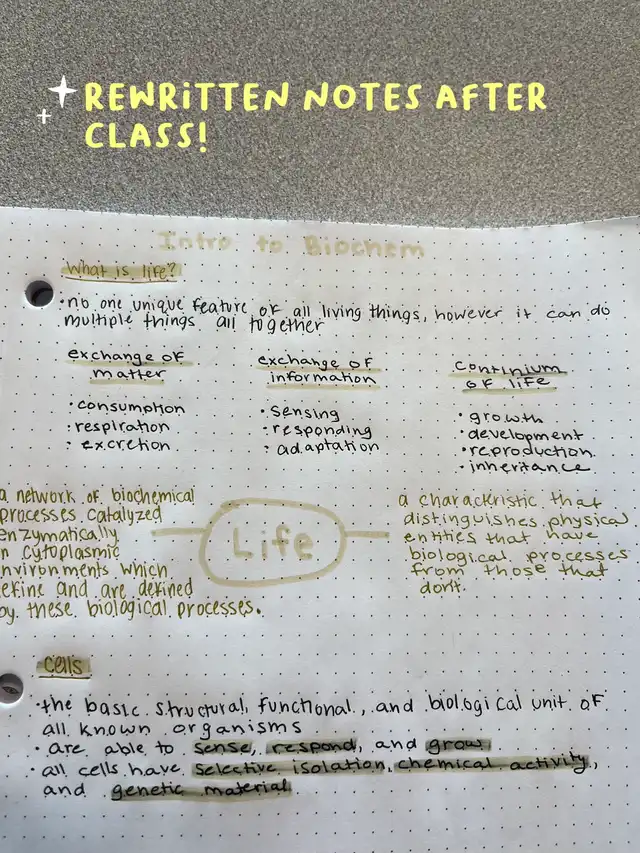 REWRITTEN NOTES AFTER
CLASS!
Intro to Biochem
What is life?
• no one unique feature of all living things, however it can do
multiple things all together
exchange of
matter
• consumption
• respiration
• excretion
exchange of
information
• sensing
• responding
• adaptation
continium
of life
• growth
• development
• reproduction
• inheritance
a network of biochemical
processes catalyzed
enzymatically
n cytoplasmic
nvironments which
efine and are defined
by these biological processes.
Life
a charackristic that
distinguishes physical
entities that have
biological processes
from those that
don't.
cells
• the basic structural, functional, and biological unit of
all known organisms
• are able to sense, respond, and grow
• all cells have selective isolation, chemical activity,
and genetic material